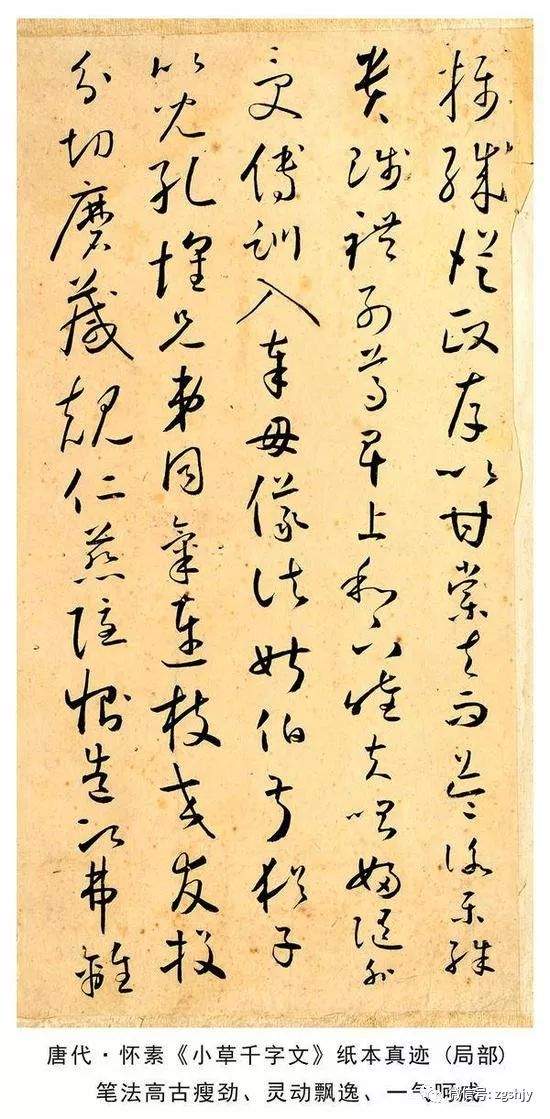 攝職從政存以甘棠去而益詠樂殊
貴賤禮別尊卑上和下睦夫唱婦隨外
受傅訓入奉母儀諸姑伯叔猶子
比兒孔懷兄弟同氣連枝交友投
分切磨箴規仁慈隱惻造次弗離
唐代·怀素《小草千字文》纸本真迹 (局部)
笔法高古瘦劲、灵动飘逸、一气呵成
微信号: zgshjy